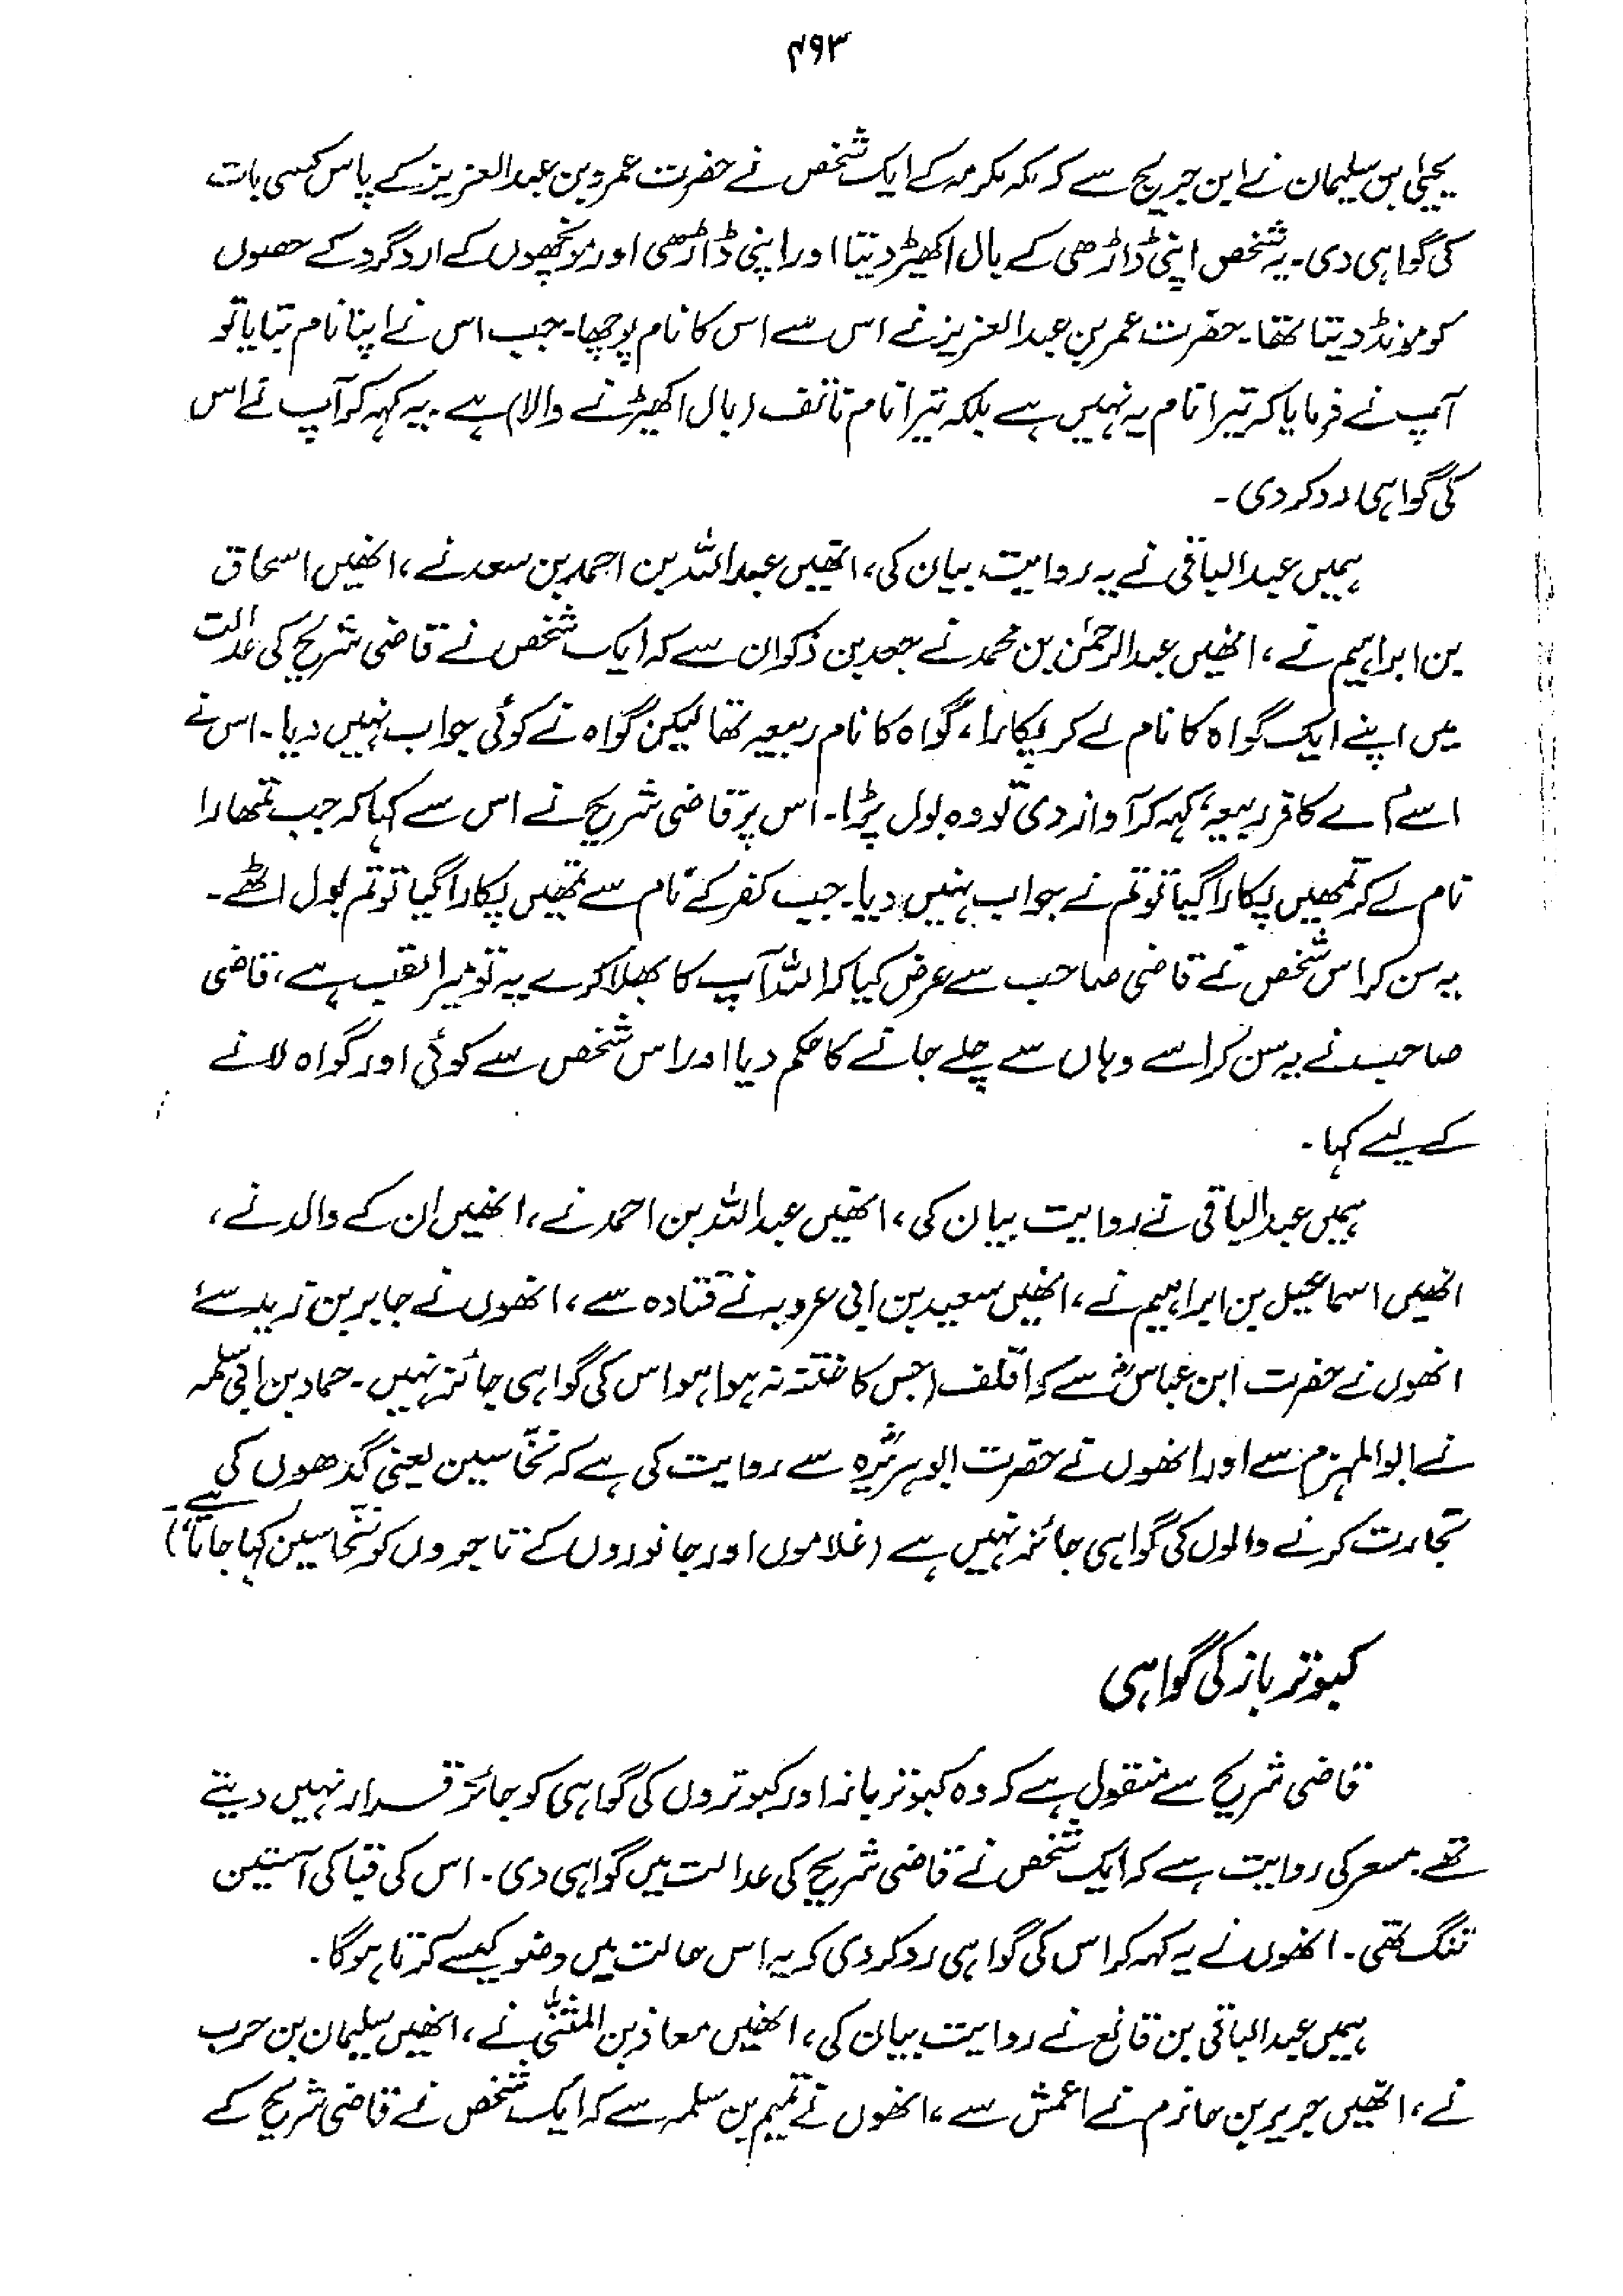 ۴۹۳
یحییٰ بن سلیمان نے ابن جریج سے کہ مکہ مکرمہ کے ایک شخص نے حضرت عمرو بن عبدالعزیز کے پاس کسی بات
کی گواہی دی۔ یہ شخص اپنی ڈاڑھی کے بال اکھیڑ دیتا اور اپنی ڈاڑھی اور مونچھوں کے ارد گرد کے حصوں
کو مونڈ دیتا تھا۔ حضرت عمر بن عبدالعزیز نے اس سے اس کا نام پوچھا۔ جب اس نے اپنا نام بتایا تو
آپ نے فرمایا کہ تیرا نام یہ نہیں ہے بلکہ تیرا نام ناتف (بال اکھیڑنے والا) ہے۔ یہ کہہ کر آپ نے اس
کی گواہی رد کر دی۔
ہمیں عبدالباقی نے یہ روایت بیان کی، انھیں عبداللہ بن احمد بن سعد نے، انھیں اسحاق
بن ابراہیم نے، انھیں عبدالرحمٰن بن محمد نے جعد بن ذکوان سے کہ ایک شخص نے قاضی شریح کی عدالت
میں اپنے ایک گواہ کا نام لے کر پکارا، گواہ کا نام ربیعہ تھا لیکن گواہ نے کوئی جواب نہیں دیا۔ اس نے
اسے ’اے کافر ربیعہ‘ کہہ کر آواز دی تو وہ بول پڑا۔ اس پر قاضی شریح نے اس سے کہا کہ جب تمھارا
نام لے کر تمھیں پکارا گیا تو تم نے جواب نہیں دیا۔ جب کفر کے نام سے تمھیں پکارا گیا تو تم بول اٹھے۔
یہ سن کر اس شخص نے قاضی صاحب سے عرض کیا کہ اللہ آپ کا بھلا کرے یہ تو میرا لقب ہے، قاضی
صاحب نے یہ سن کر اسے وہاں سے چلے جانے کا حکم دیا اور اس شخص سے کوئی اور گواہ لانے
کے لیے کہا۔
ہمیں عبدالباقی نے روایت بیان کی، انھیں عبداللہ بن احمد نے، انھیں ان کے والد نے،
انھیں اسماعیل بن ابراہیم نے، انھیں سعید بن ابی عروبہ نے قتادہ سے، انھوں نے جابر بن زید سے
انھوں نے حضرت ابن عباسؓ سے کہ اقلف (جس کا ختنہ نہ ہوا ہو اس کی گواہی جائز نہیں۔ حماد بن ابی سلمہ
نے ابوالمہزم سے اور انھوں نے حضرت ابوہریرہؓ سے روایت کی ہے کہ نخّاسین یعنی گدھوں کی
تجارت کرنے والوں کی گواہی جائز نہیں ہے (غلاموں اور جانوروں کے تاجروں کو نخّاسین کہا جاتا ہے۔)
کبوتر باز کی گواہی
قاضی شریح سے منقول ہے کہ وہ کبوتر باز اور کبوتروں کی گواہی کو جائز قرار نہیں دیتے
تھے۔ مسعر کی روایت ہے کہ ایک شخص نے قاضی شریح کی عدالت میں گواہی دی۔ اس کی قبا کی آستین
تنگ تھی۔ انھوں نے یہ کہہ کر اس کی گواہی رد کر دی کہ یہ اس حالت میں وضو کیسے کرتا ہوگا۔
ہمیں عبدالباقی بن قانع نے روایت بیان کی، انھیں معاذ بن المثنّٰی نے، انھیں سلیمان بن حرب
نے، انھیں جریر بن حازم نے اعمش سے، انھوں نے تمیم بن سلمہ سے کہ ایک شخص نے قاضی شریح کے